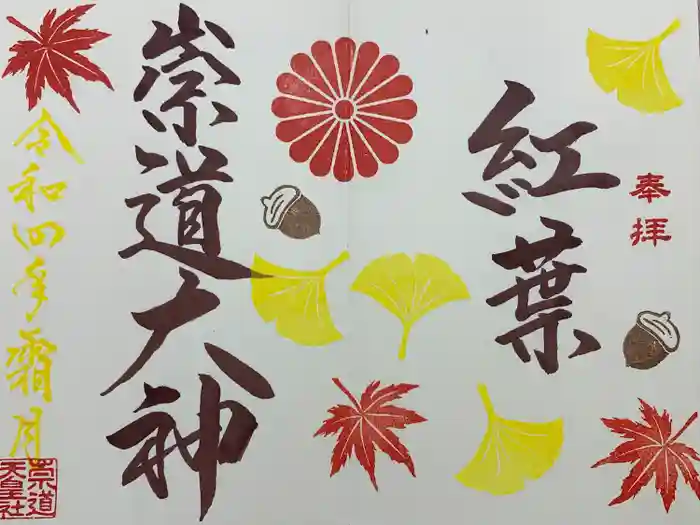 奉拝
紅葉
崇道大神
令和四年霜月
崇道
天皇社